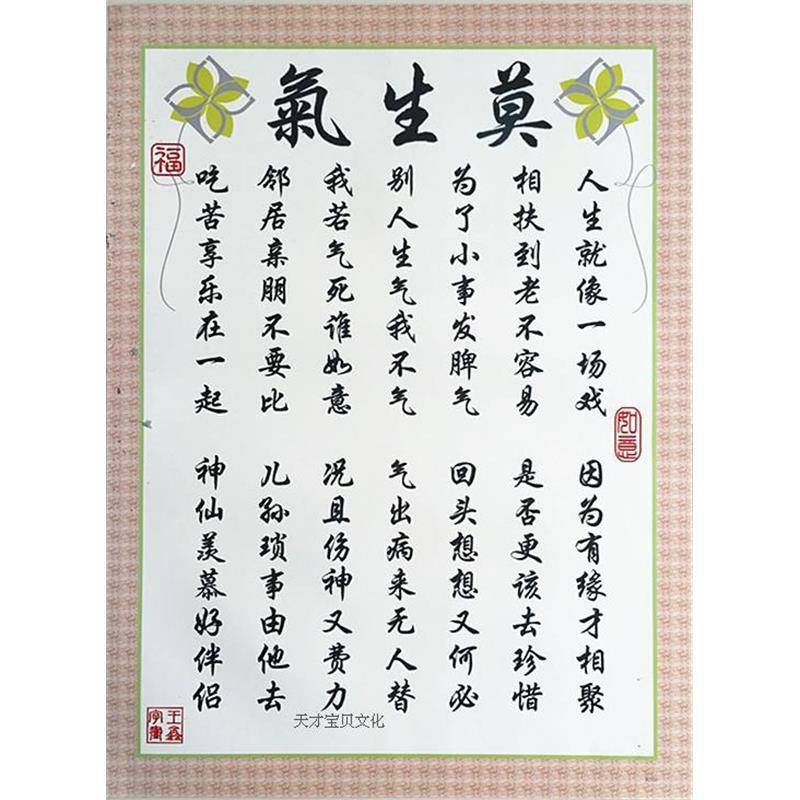 莫生氣
人生就像一场戏
因为有缘才相聚
相扶到老不容易
是否更该去珍惜
为了小事发脾气
回头想想又何必
别人生气我不气
气出病来无人替
我若气死谁如意
况且伤神又费力
邻居亲朋不要比
儿孙琐事由他去
吃苦享乐在一起
神仙羡慕好伴侣
福
如意
天才宝贝文化